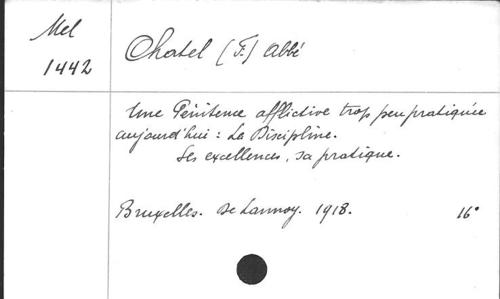 Mel
1442
Chatel (F.) Abbé
Une Pénitence afflictive trop peu pratiquée
aujourd'hui : La Discipline.
Ses excellences, sa pratique.
Bruxelles. De Lannoy. 1918. 16°